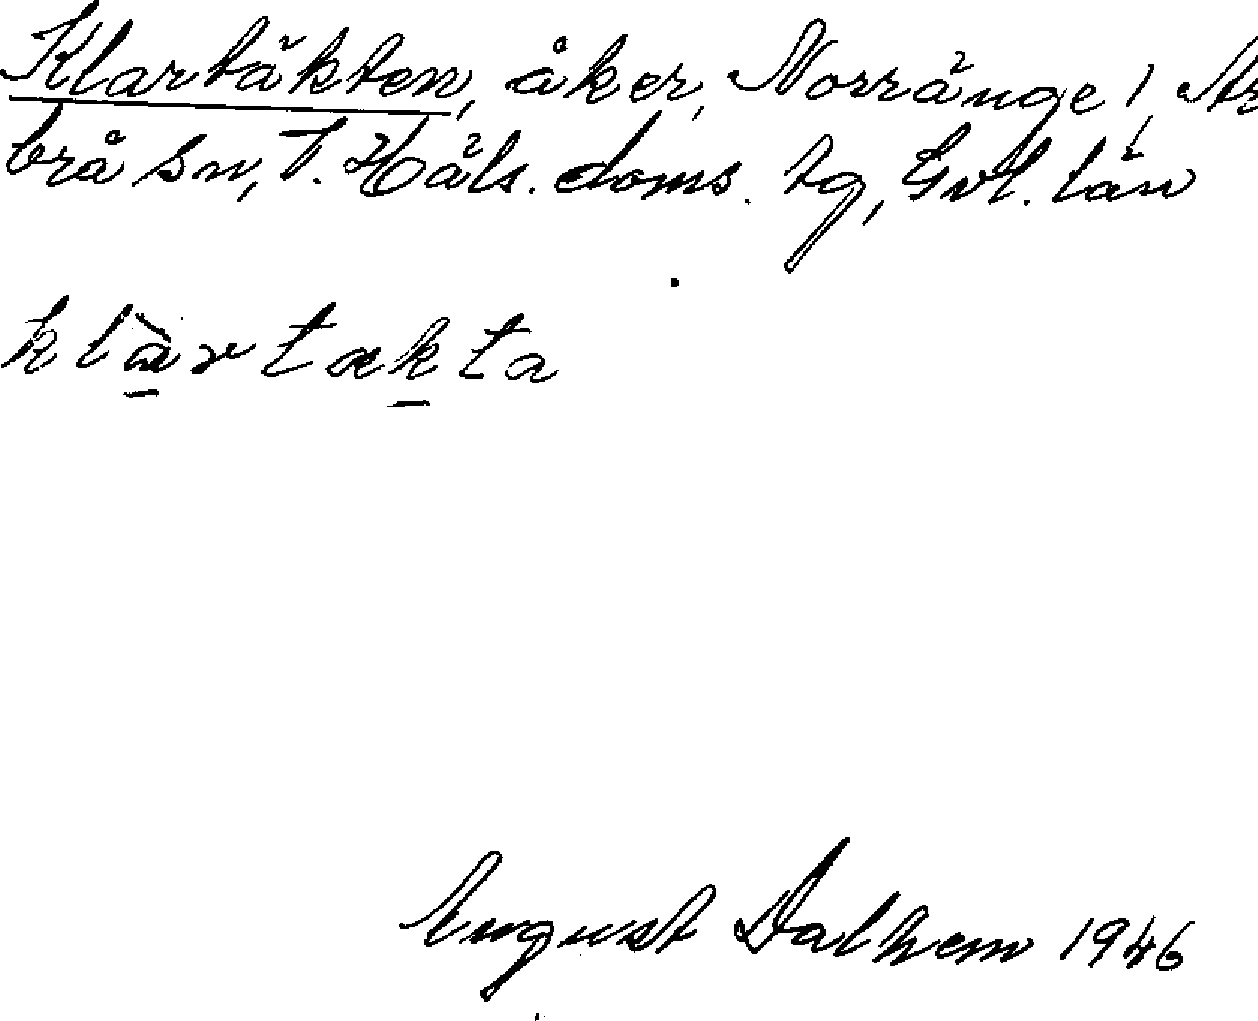 Klartäkten, åker, Norränge 1, Ar
brå sn, V. Häls. doms. tg, Gvl. län
klàrtækta
August Dalhem 1946